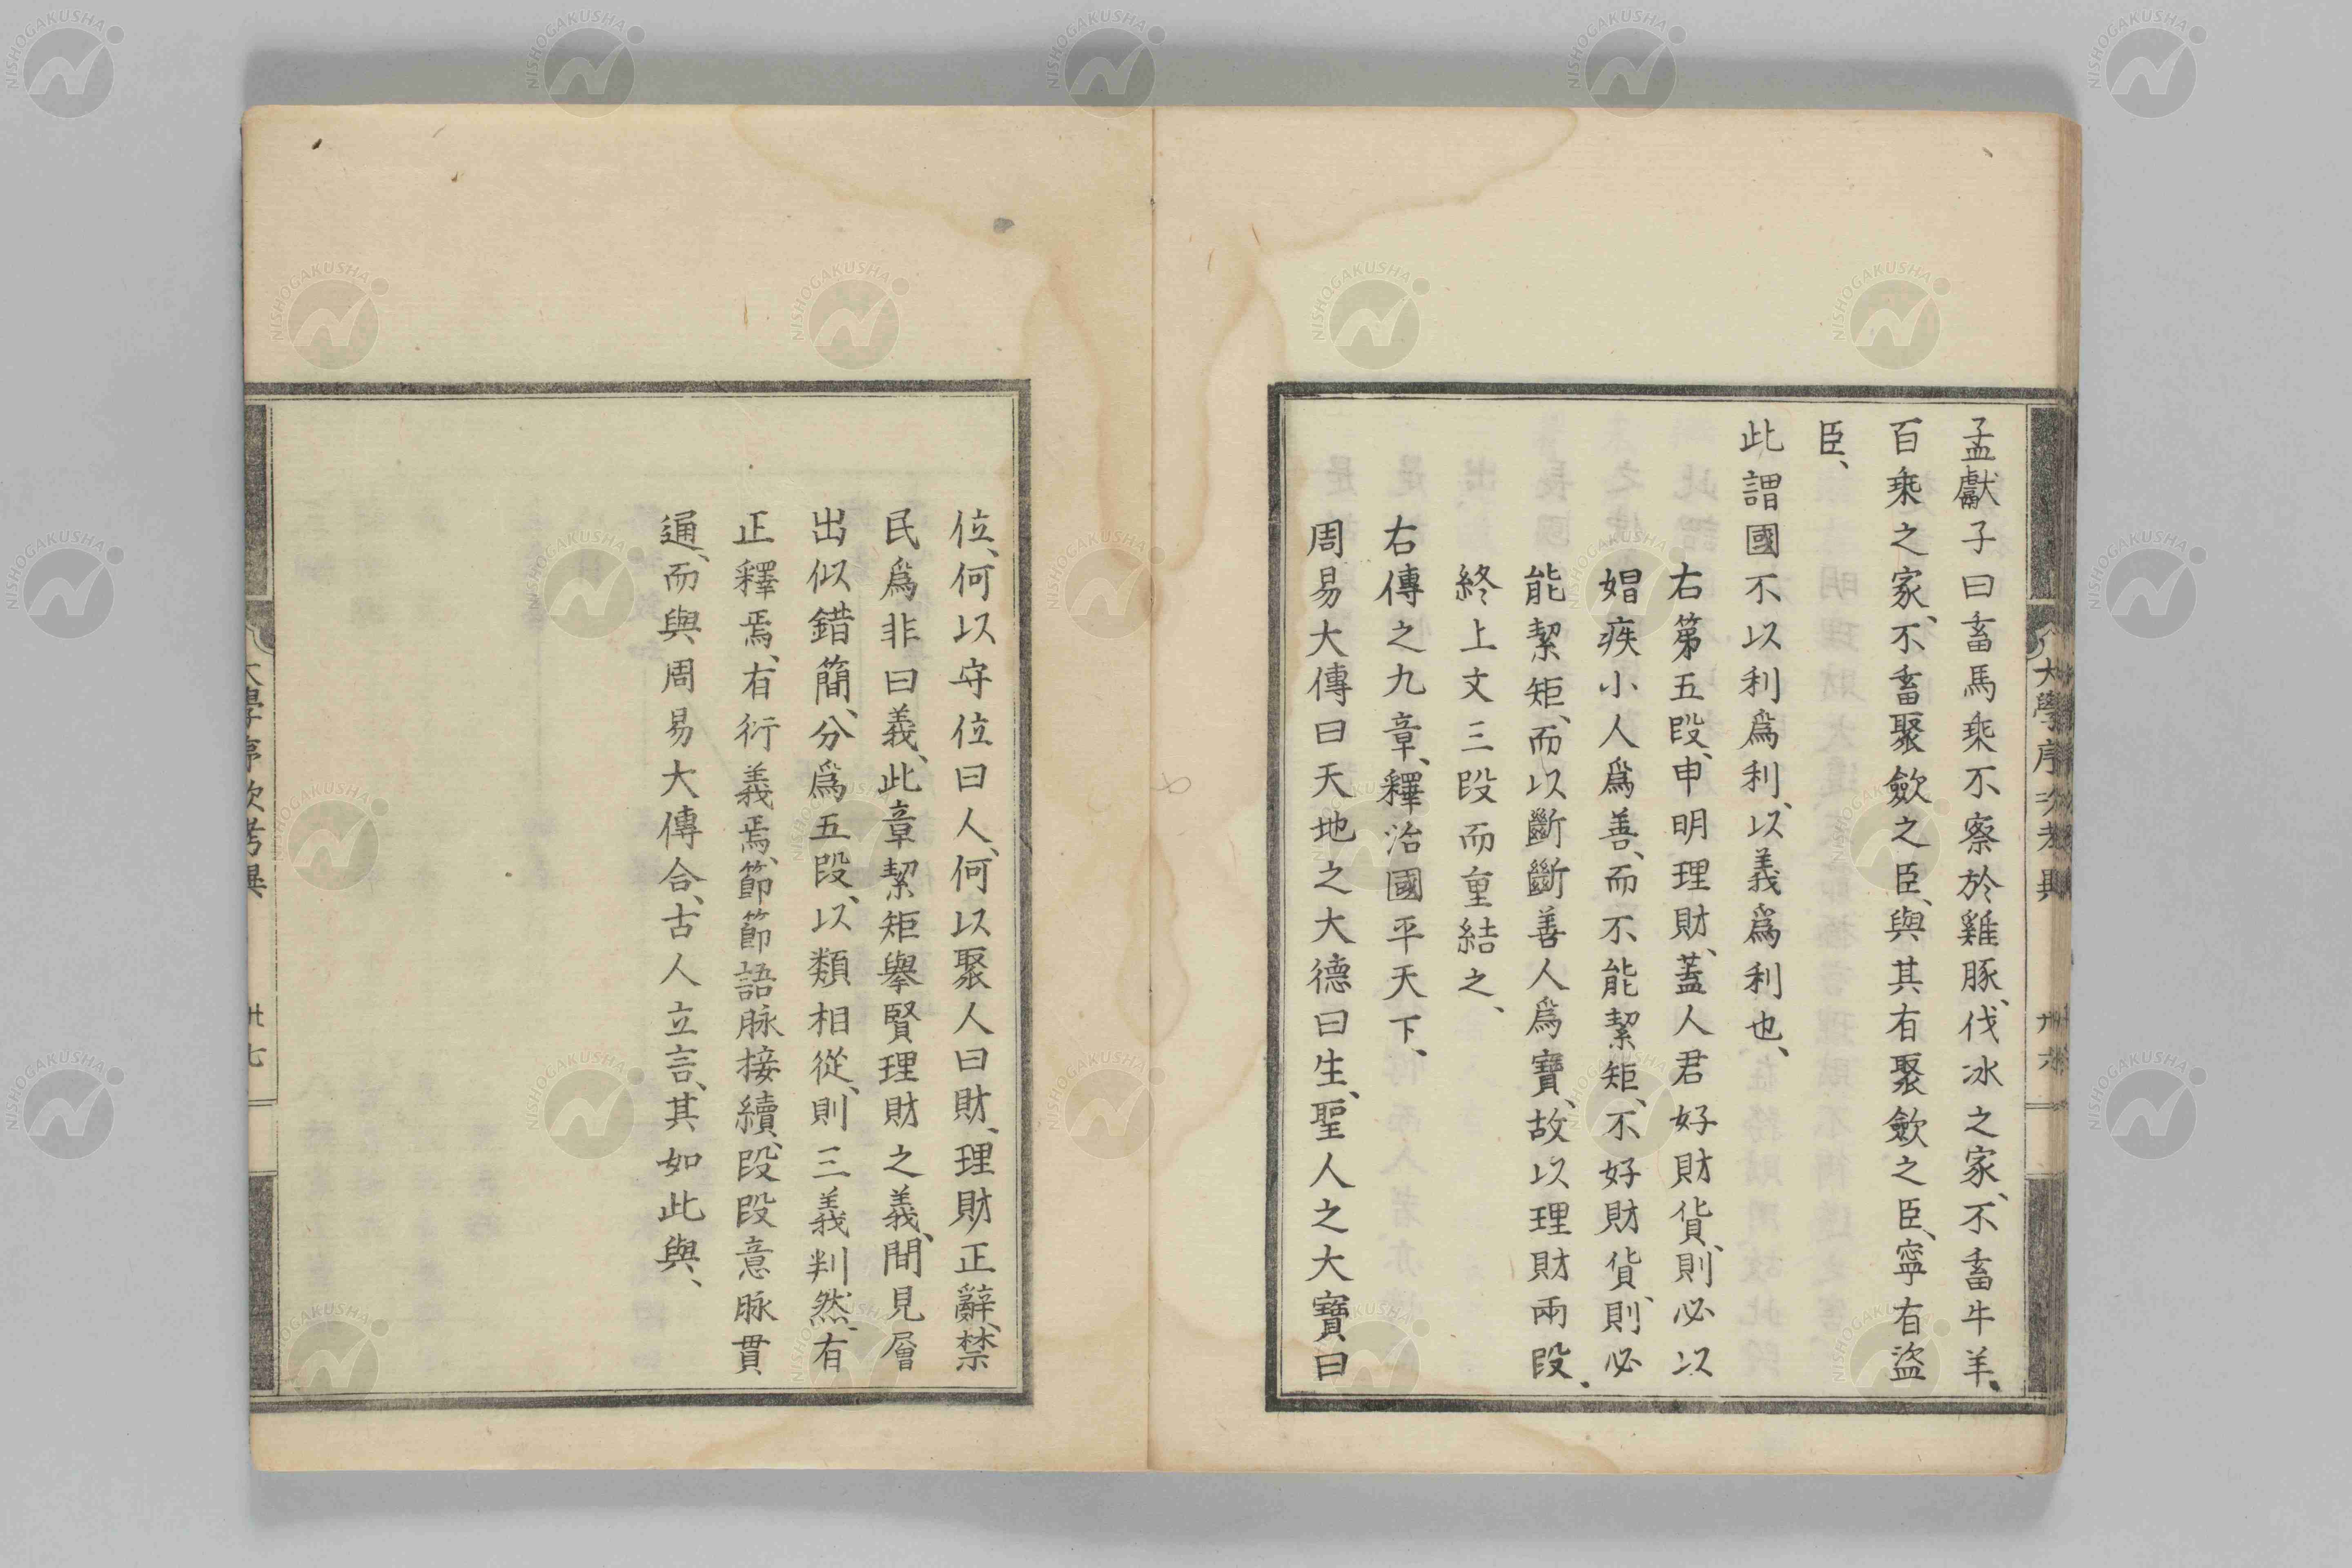 孟獻子曰畜馬乘不察於雞豚、伐冰之家、不畜牛羊、
百乘之家、不畜聚斂之臣、與其有聚斂之臣、寧有盜
臣、
此謂國不以利爲利、以義爲利也、
右第五段、申明理財、蓋人君好財貨、則必以
娼疾小人爲善、而不能絜矩、不好財貨、則必
能絜矩、而以斷斷善人爲寶、故以理財兩段、
終上文三段而重結之、
右傳之九章、釋治國平天下、
周易大傳曰天地之大德曰生、聖人之大寶曰
大學序次考異
廿六
位、何以守位曰人、何以聚人曰財、理財正辭、禁
民爲非曰義、此章絜矩擧賢理財之義、間見層
出似錯簡、分爲五段、以類相從、則三義判然、有
正釋焉、有衍義焉、節節語脉接續、段段意脉貫
通、而與周易大傳合、古人立言、其如此與、
大學序次考異
廿七
NISHOGAKUSHA